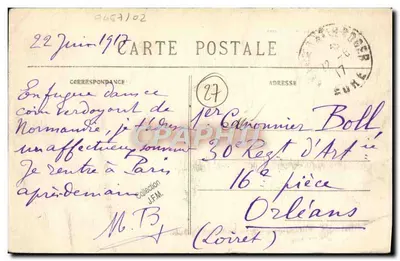 9657/02
22 Juin 1917
CARTE POSTALE
CORRESPONDANCE
ADRESSE
27
EURE
17
En fugue dans ce
coin verdoyant de
Normandie, je t'
un affectueux souvenir
Je rentre à Paris
après demain
M. B
1er Canonnier Boll
30e Regt d'Artie
16e pièce
Orléans
(Loiret)
Collection
JFM